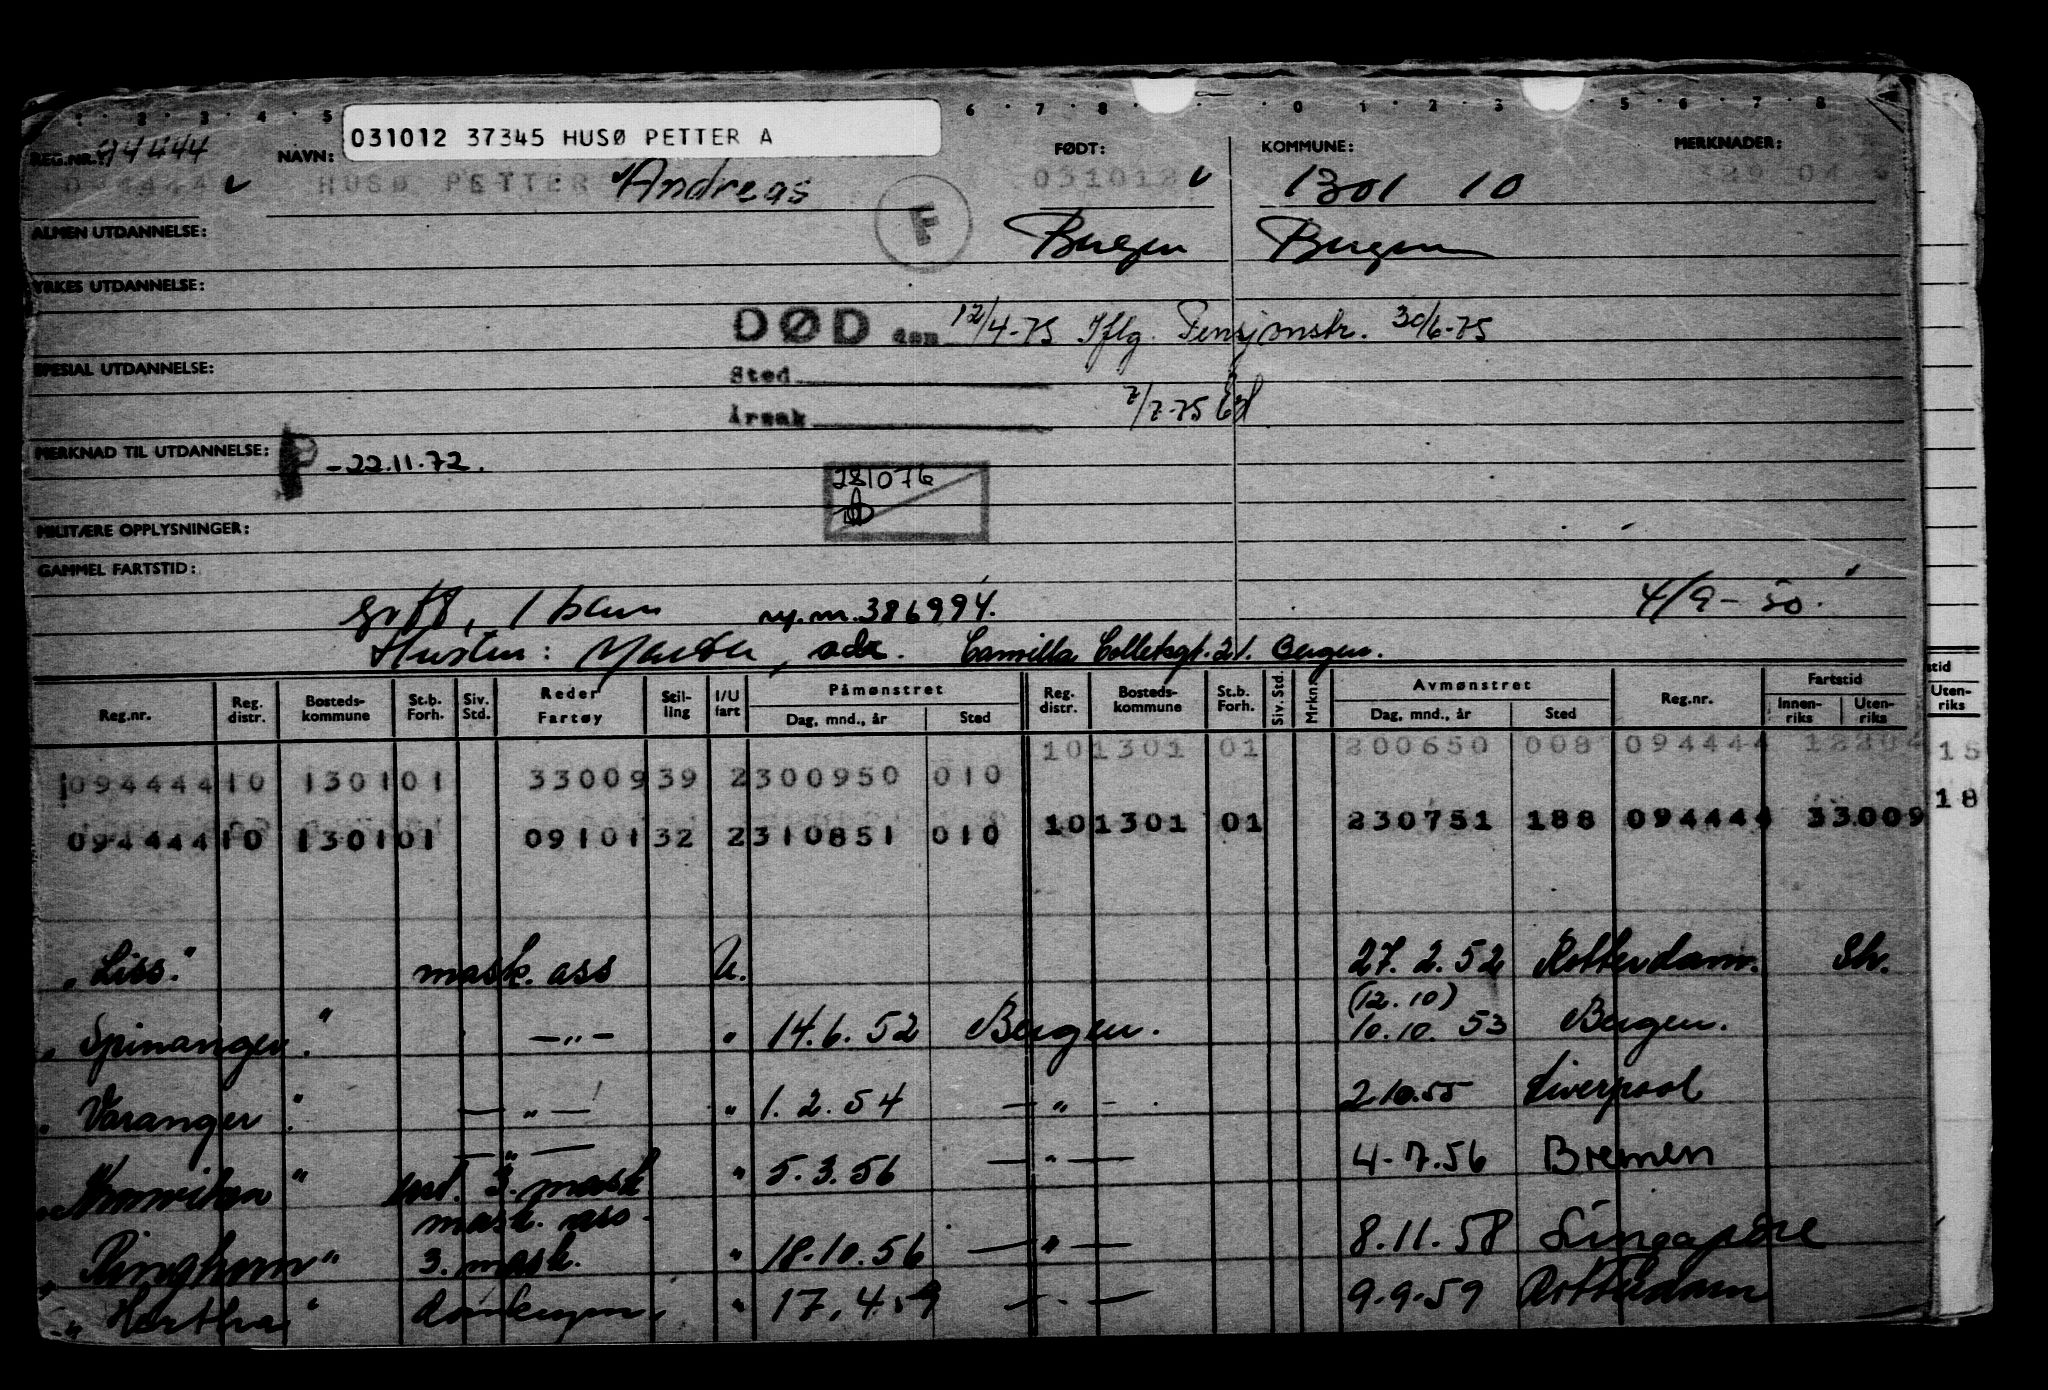 1 · 2 · 3 · 4 · 5 6 · 7 · 8 · 0 · 1 · 2 · 3 · 5 6 · 7 · 8
031012 37345 HUSØ PETTER A
REG.NR.: 94444 NAVN: FØDT: KOMMUNE: MERKNADER:
094444 HUSØ PETTER Andreas 031012 1301 10
F
ALMEN UTDANNELSE: Bergen Bergen
YRKES UTDANNELSE:
DØD den 12/4-75 Iflg. Pensjonstr. 30/6-75
SPESIAL UTDANNELSE: Sted
Årsak 7/7-75
MERKNAD TIL UTDANNELSE: P -22.11.72.
281076
MILITÆRE OPPLYSNINGER:
GAMMEL FARTSTID:
gift, 1 barn ny.m.386994. 4/9-50.
Hustru: adr. Camilla Colletsgt.21. Bergen.
Reg.nr. Reg. distr. Bosteds-kommune St.b. Forh. Siv. Std. Reder Fartøy Stil-ling I/U fart Påmønstret Dag, mnd., år Sted Reg. distr. Bosteds-kommune St.b. Forh. Siv. Std. Mrkn. Avmønstret Dag, mnd., år Sted Reg.nr. Fartstid Innen-riks Uten-riks
tid Uten-riks
101301 01 200650 008 094444 15
094444 10 1301 01 33009 39 2 300950 010
101301 01 230751 188 094444 33009 18
094444 10 1301 01 09101 32 2 310851 010
"Liss." mask. ass U. 27. 2. 52 Rotterdam. Sh.
(12.10)
"Spinanger". —"— " 14. 6. 52 Bergen. 10.10. 53 Bergen.
"Varanger". —"— " 1. 2. 54 —"— 2 10.55 Liverpool
—"—
3. mask " 5. 3. 56 —"— 4-7.56 Bremen
mask. ass.
"Ringhorn" 3. mask. " 18.10.56 —"— 8.11.58 Singapore
"Hertha" donkeym. " 17.4.59 —"— 9.9.59 Rotterdam